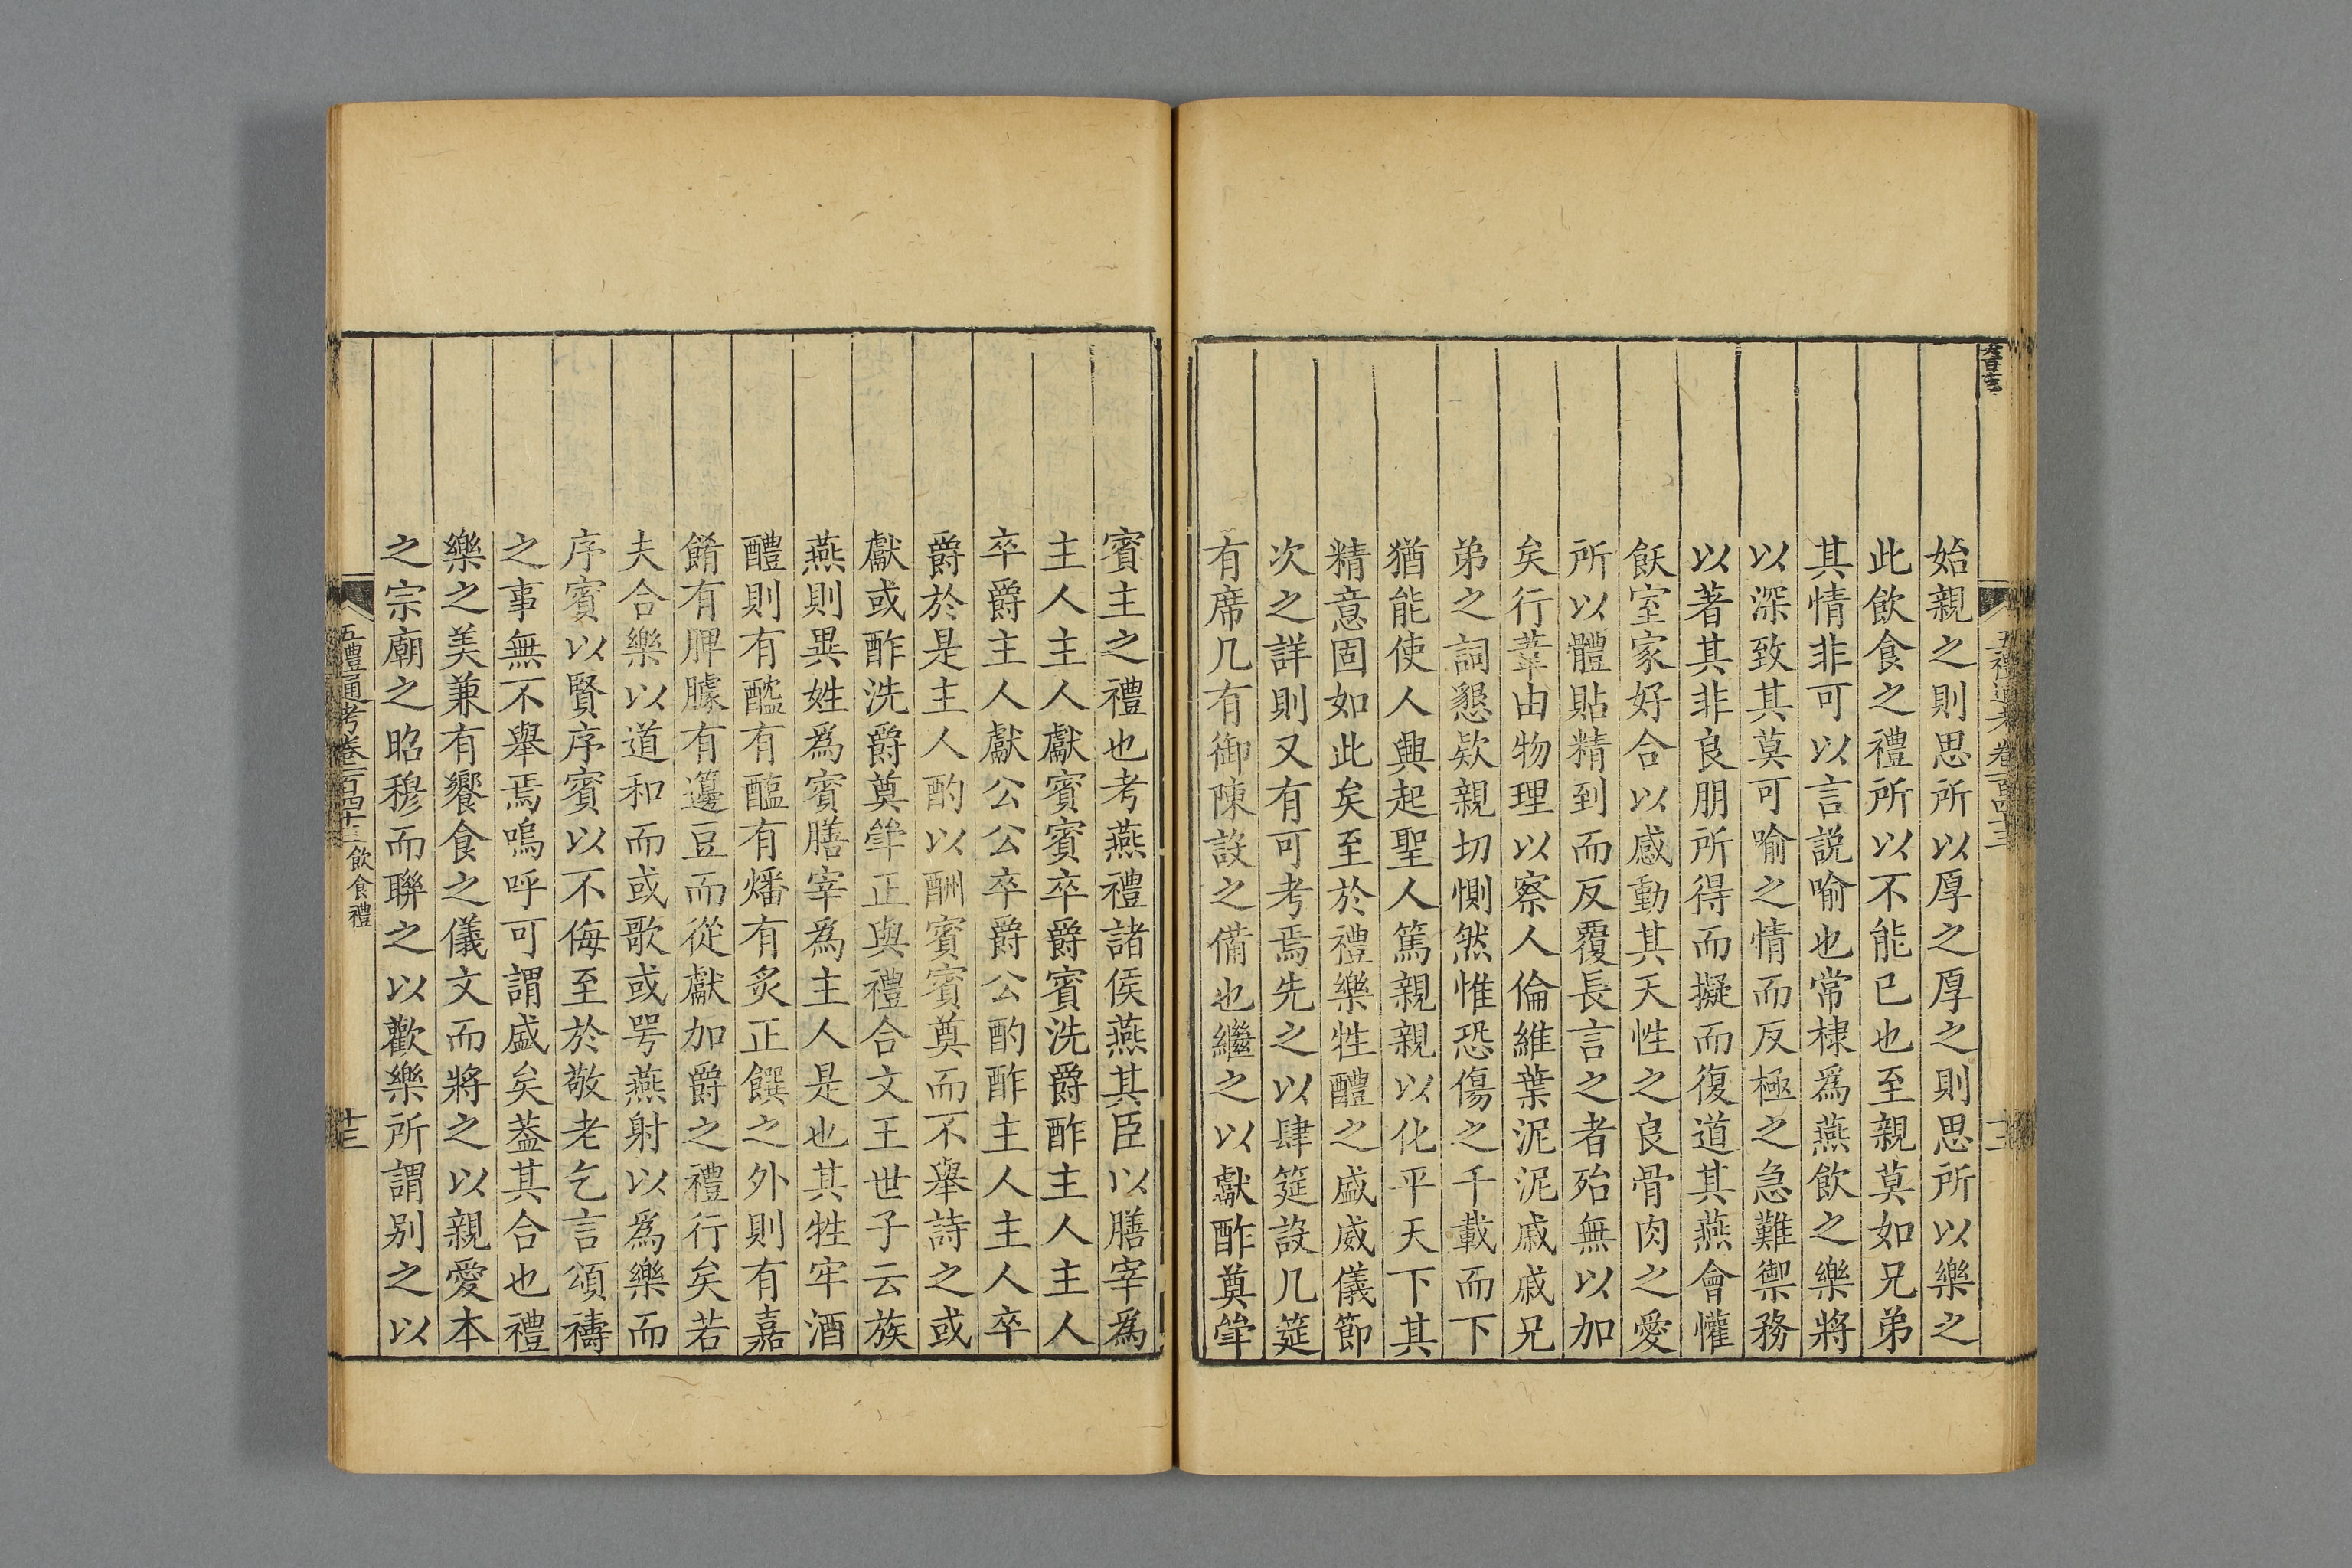 始親之則思所以厚之厚之則思所以樂之
此飲食之禮所以不能已也至親莫如兄弟
其情非可以言説喻也常棣爲燕飲之樂將
以深致其莫可喻之情而反極之急難禦務
以著其非良朋所得而擬而復道其燕會懽
飫室家好合以感動其天性之良骨肉之愛
所以體貼精到而反覆長言之者殆無以加
矣行葦由物理以察人倫維葉泥泥戚戚兄
弟之詞懇欵親切惻然惟恐傷之千載而下
猶能使人興起聖人篤親親以化平天下其
精意固如此矣至於禮樂牲醴之盛威儀節
次之詳則又有可考焉先之以肆筵設几筵
有席几有御陳設之備也繼之以獻酢奠斝
五禮通考卷一百四十三
賓主之禮也考燕禮諸侯燕其臣以膳宰爲
主人主人獻賓賓卒爵賓洗爵酢主人主人
卒爵主人獻公公卒爵公酌酢主人主人卒
爵於是主人酌以酬賓賓奠而不舉詩之或
獻或酢洗爵奠斝正與禮合文王世子云族
燕則異姓爲賓膳宰爲主人是也其牲牢酒
醴則有醓有醢有燔有炙正饌之外則有嘉
餚有脾臄有籩豆而從獻加爵之禮行矣若
夫合樂以道和而或歌或咢燕射以爲樂而
序賓以賢序賓以不侮至於敬老乞言頌禱
之事無不舉焉嗚呼可謂盛矣葢其合也禮
樂之美兼有饗食之儀文而將之以親愛本
之宗廟之昭穆而聯之以歡樂所謂别之以
五禮通考卷一百四十三 飲食禮 十三